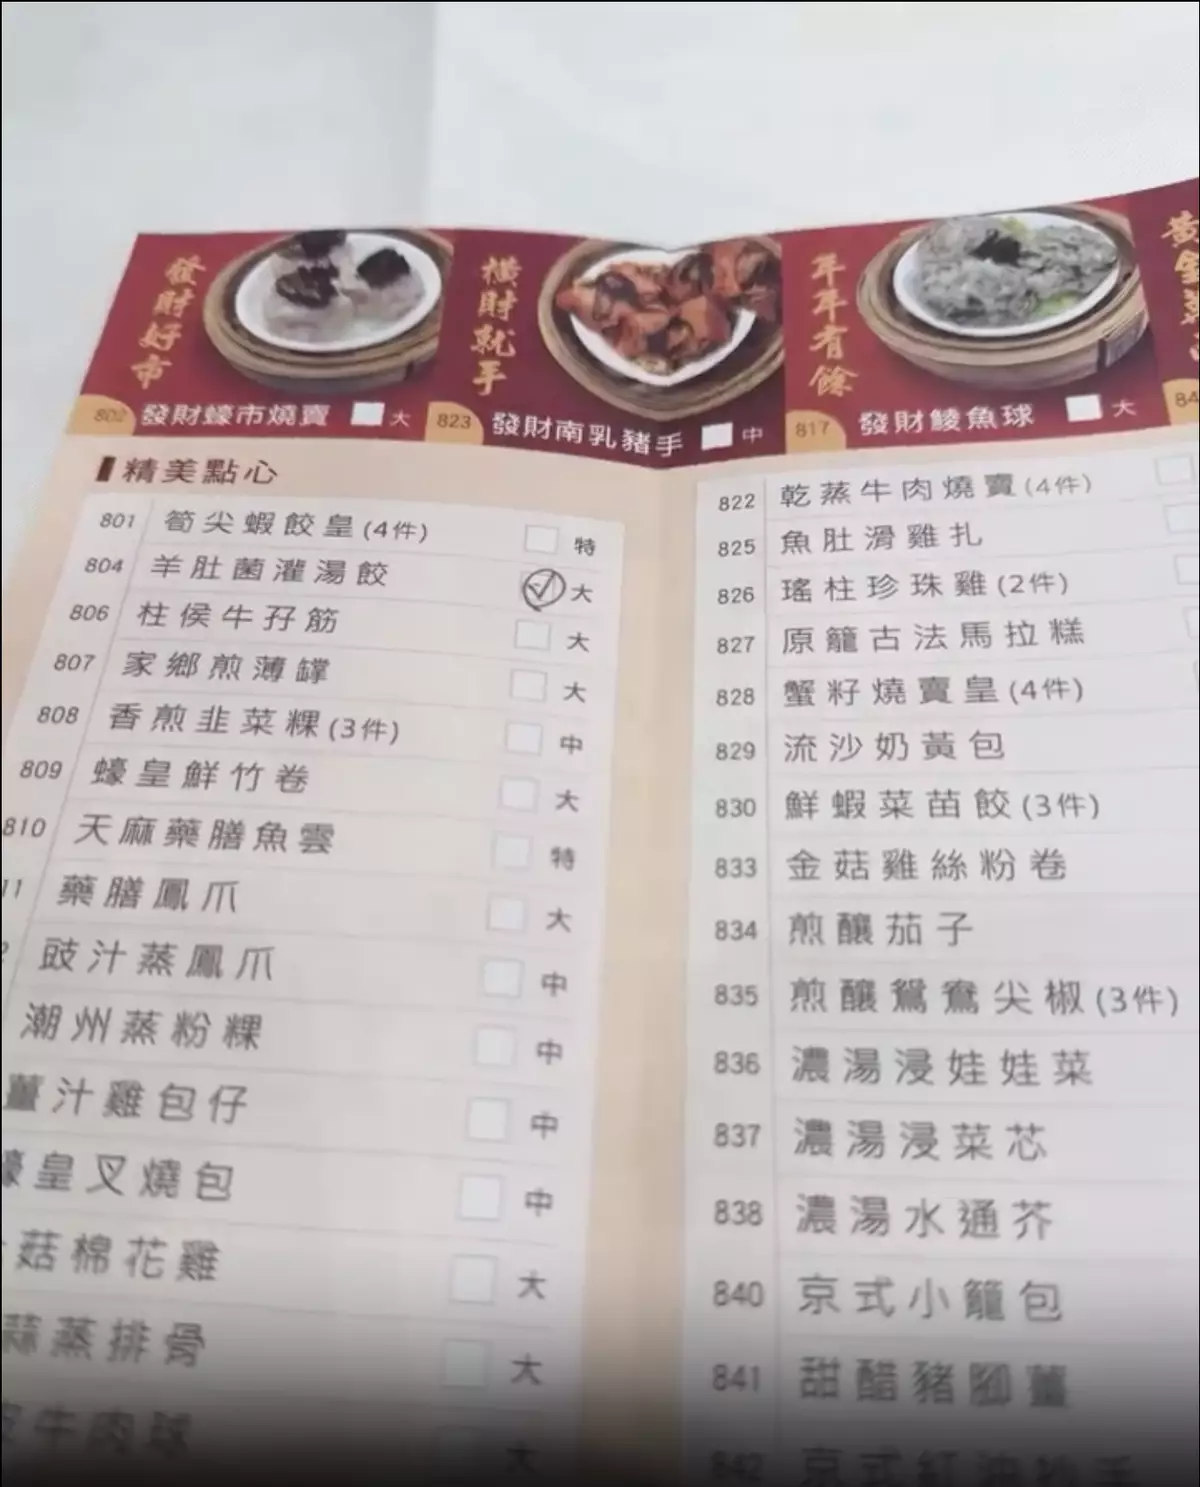 發財好市
橫財就手
年年有餘
802 發財蠔市燒賣 大
823 發財南乳豬手 中
817 發財鯪魚球 大
84
精美點心
801 筍尖蝦餃皇(4件) 特
804 羊肚菌灌湯餃 大
806 柱侯牛孖筋 大
807 家鄉煎薄罉 大
808 香煎韭菜粿(3件) 中
809 蠔皇鮮竹卷 大
810 天麻藥膳魚雲 特
11 藥膳鳳爪 大
2 豉汁蒸鳳爪 中
潮州蒸粉粿 中
薑汁雞包仔 中
蠔皇叉燒包 中
菇棉花雞 大
蒜蒸排骨 大
牛肉球 大
822 乾蒸牛肉燒賣(4件)
825 魚肚滑雞扎
826 瑤柱珍珠雞(2件)
827 原籠古法馬拉糕
828 蟹籽燒賣皇(4件)
829 流沙奶黃包
830 鮮蝦菜苗餃(3件)
833 金菇雞絲粉卷
834 煎釀茄子
835 煎釀鴛鴦尖椒(3件)
836 濃湯浸娃娃菜
837 濃湯浸菜芯
838 濃湯水通芥
840 京式小籠包
841 甜醋豬腳薑
842 京式紅油抄手